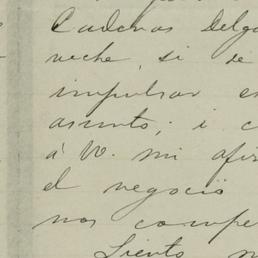 Cadenas Delga
veche, si se
impulsar es
asunto; i c
á W. mi afir
el negocio
nos compe
Siento m